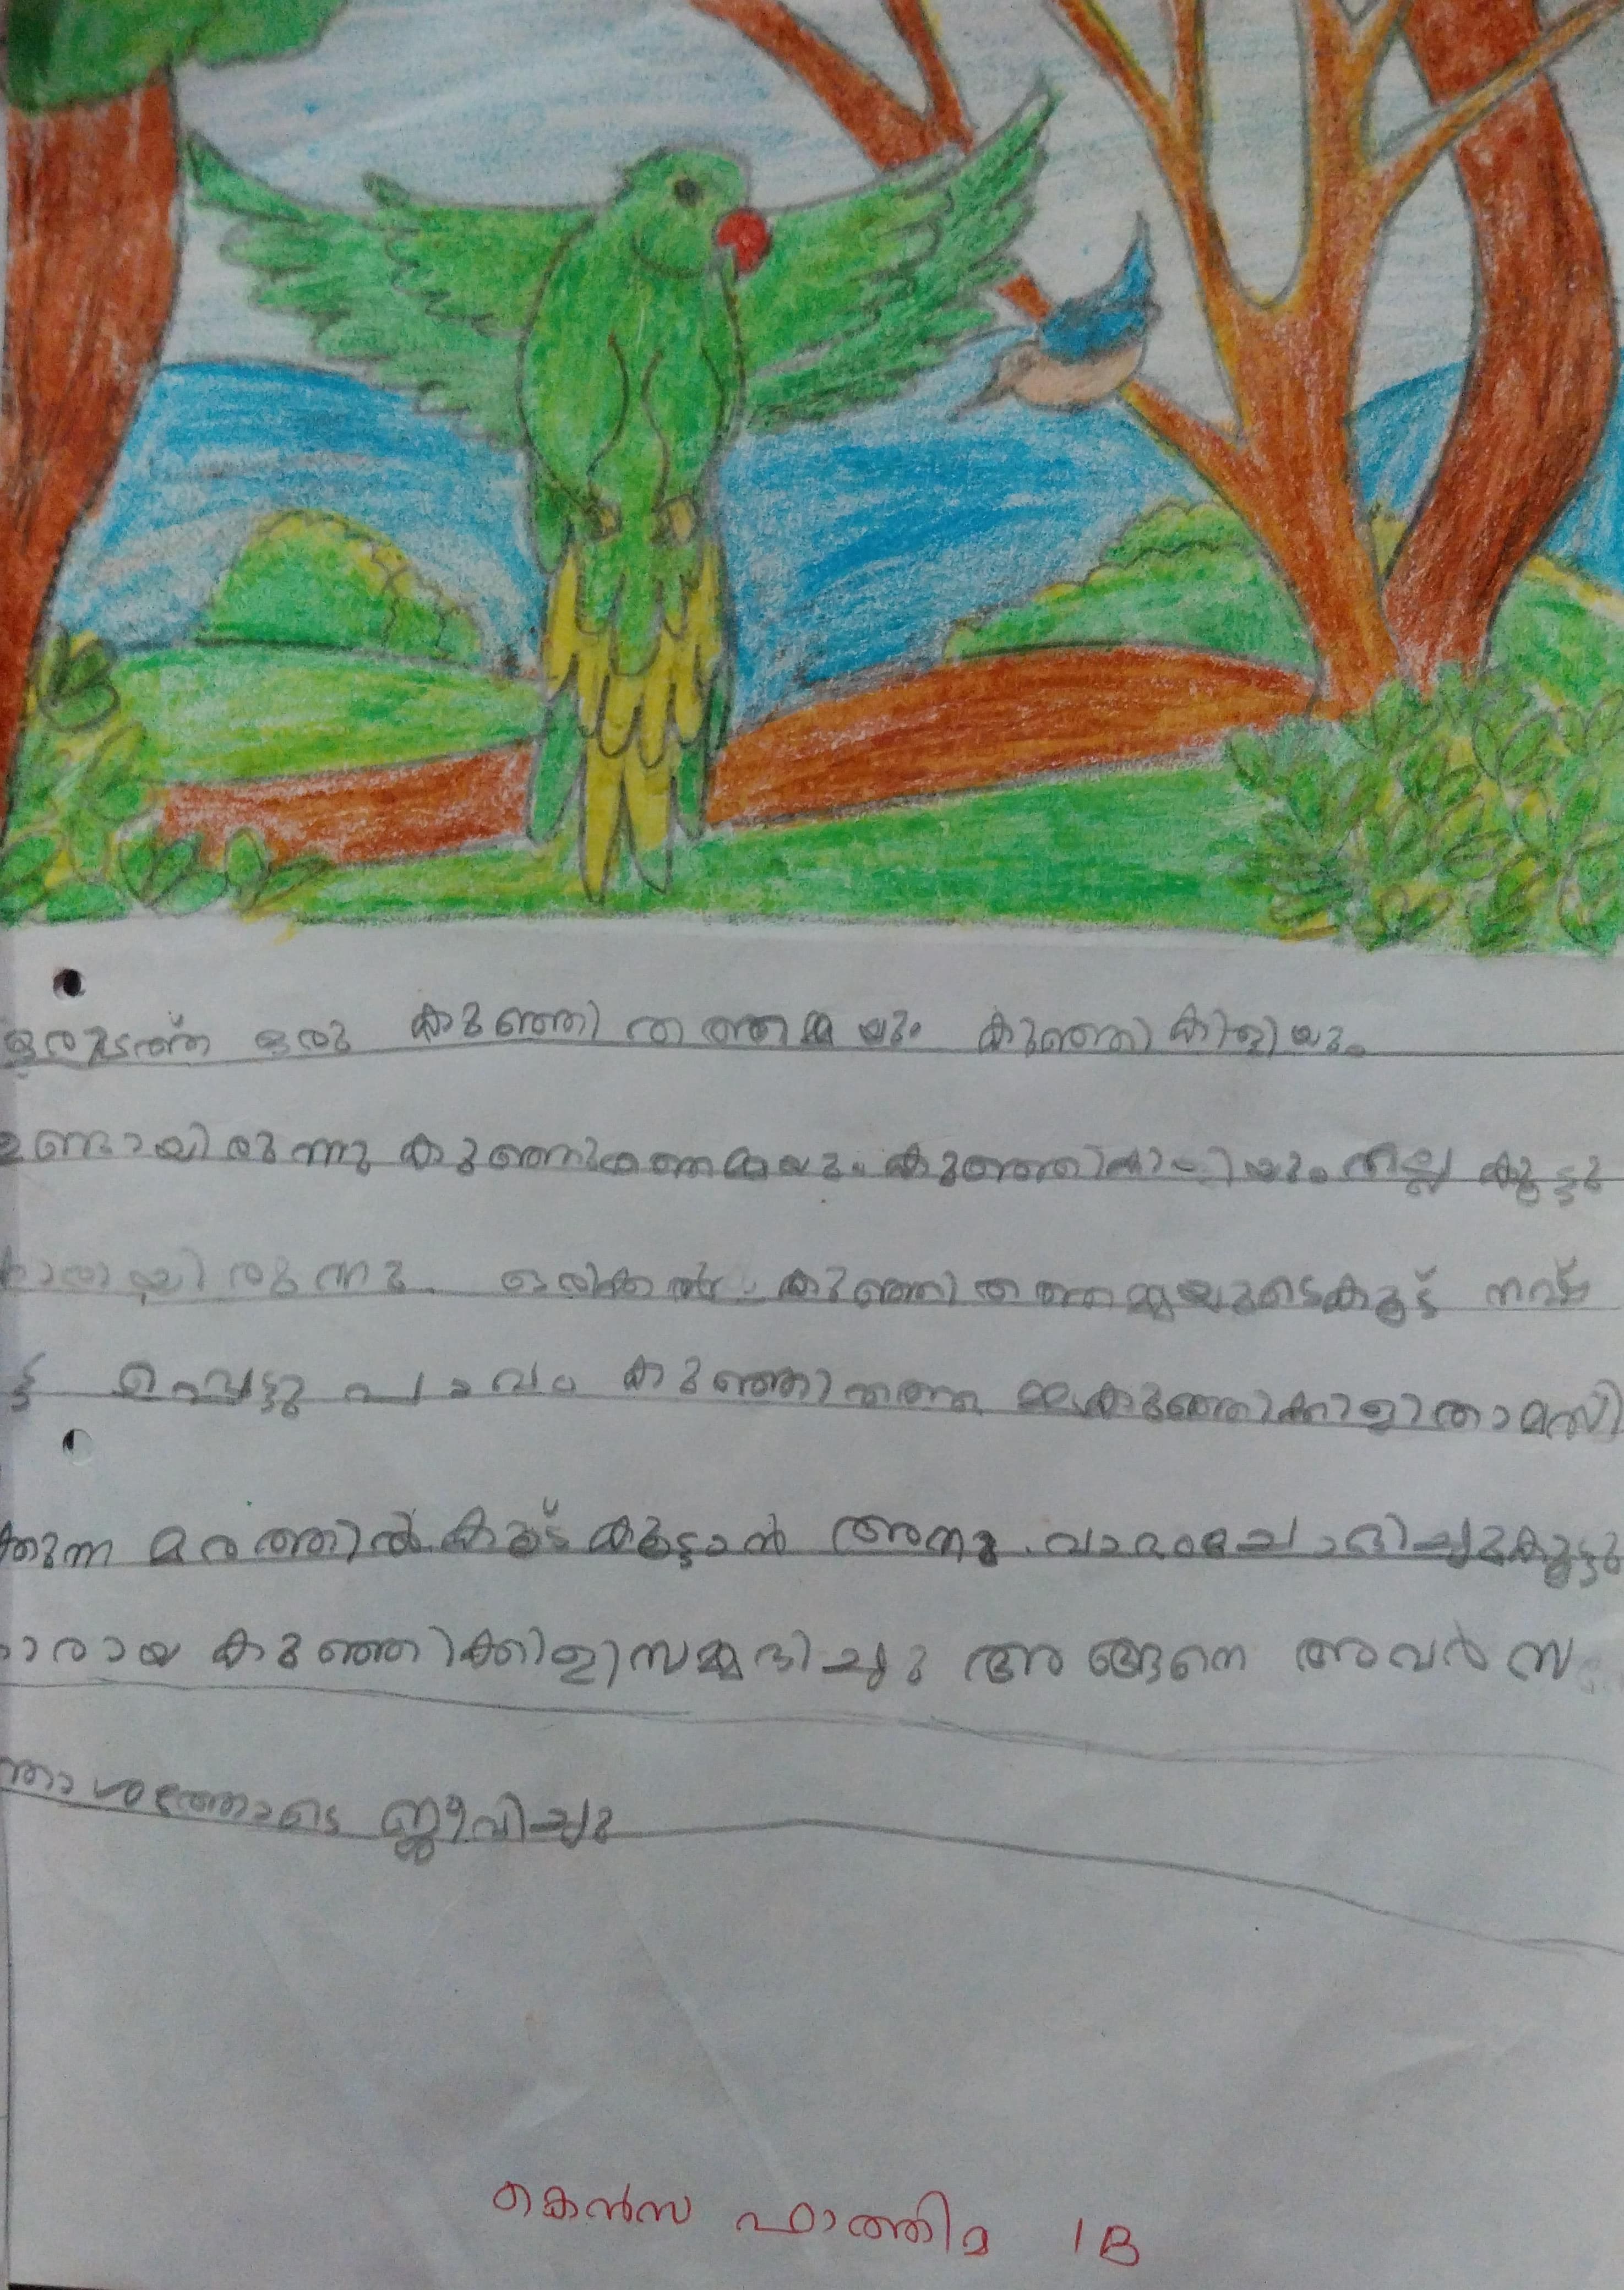 ഒരുടത്ത് ഒരു കുഞ്ഞി തത്തമ്മയും കുഞ്ഞികിളിയും
ഉണ്ടായിരുന്നു കുഞ്ഞുതത്തമ്മയും കുഞ്ഞികിളിയും നല്ല കൂട്ടു
കാരായിരുന്നു. ഒരിക്കൽ കുഞ്ഞിതത്തമ്മയുടെകൂട് നഷ്
ട്ട പ്പെട്ടു പാവം കുഞ്ഞിതത്ത മ്മകുഞ്ഞിക്കിളിതാമസി
ക്കുന്ന മരത്തിൽകൂട് കൂട്ടാൻ അനുവാദംചോദിച്ചുകൂട്ടു
കാരായ കുഞ്ഞിക്കിളിസമ്മദിച്ചു അങ്ങനെ അവർ സ
ന്തോശത്തോടെ ജീവിച്ചു
കെൻസ ഫാത്തിമ 1B